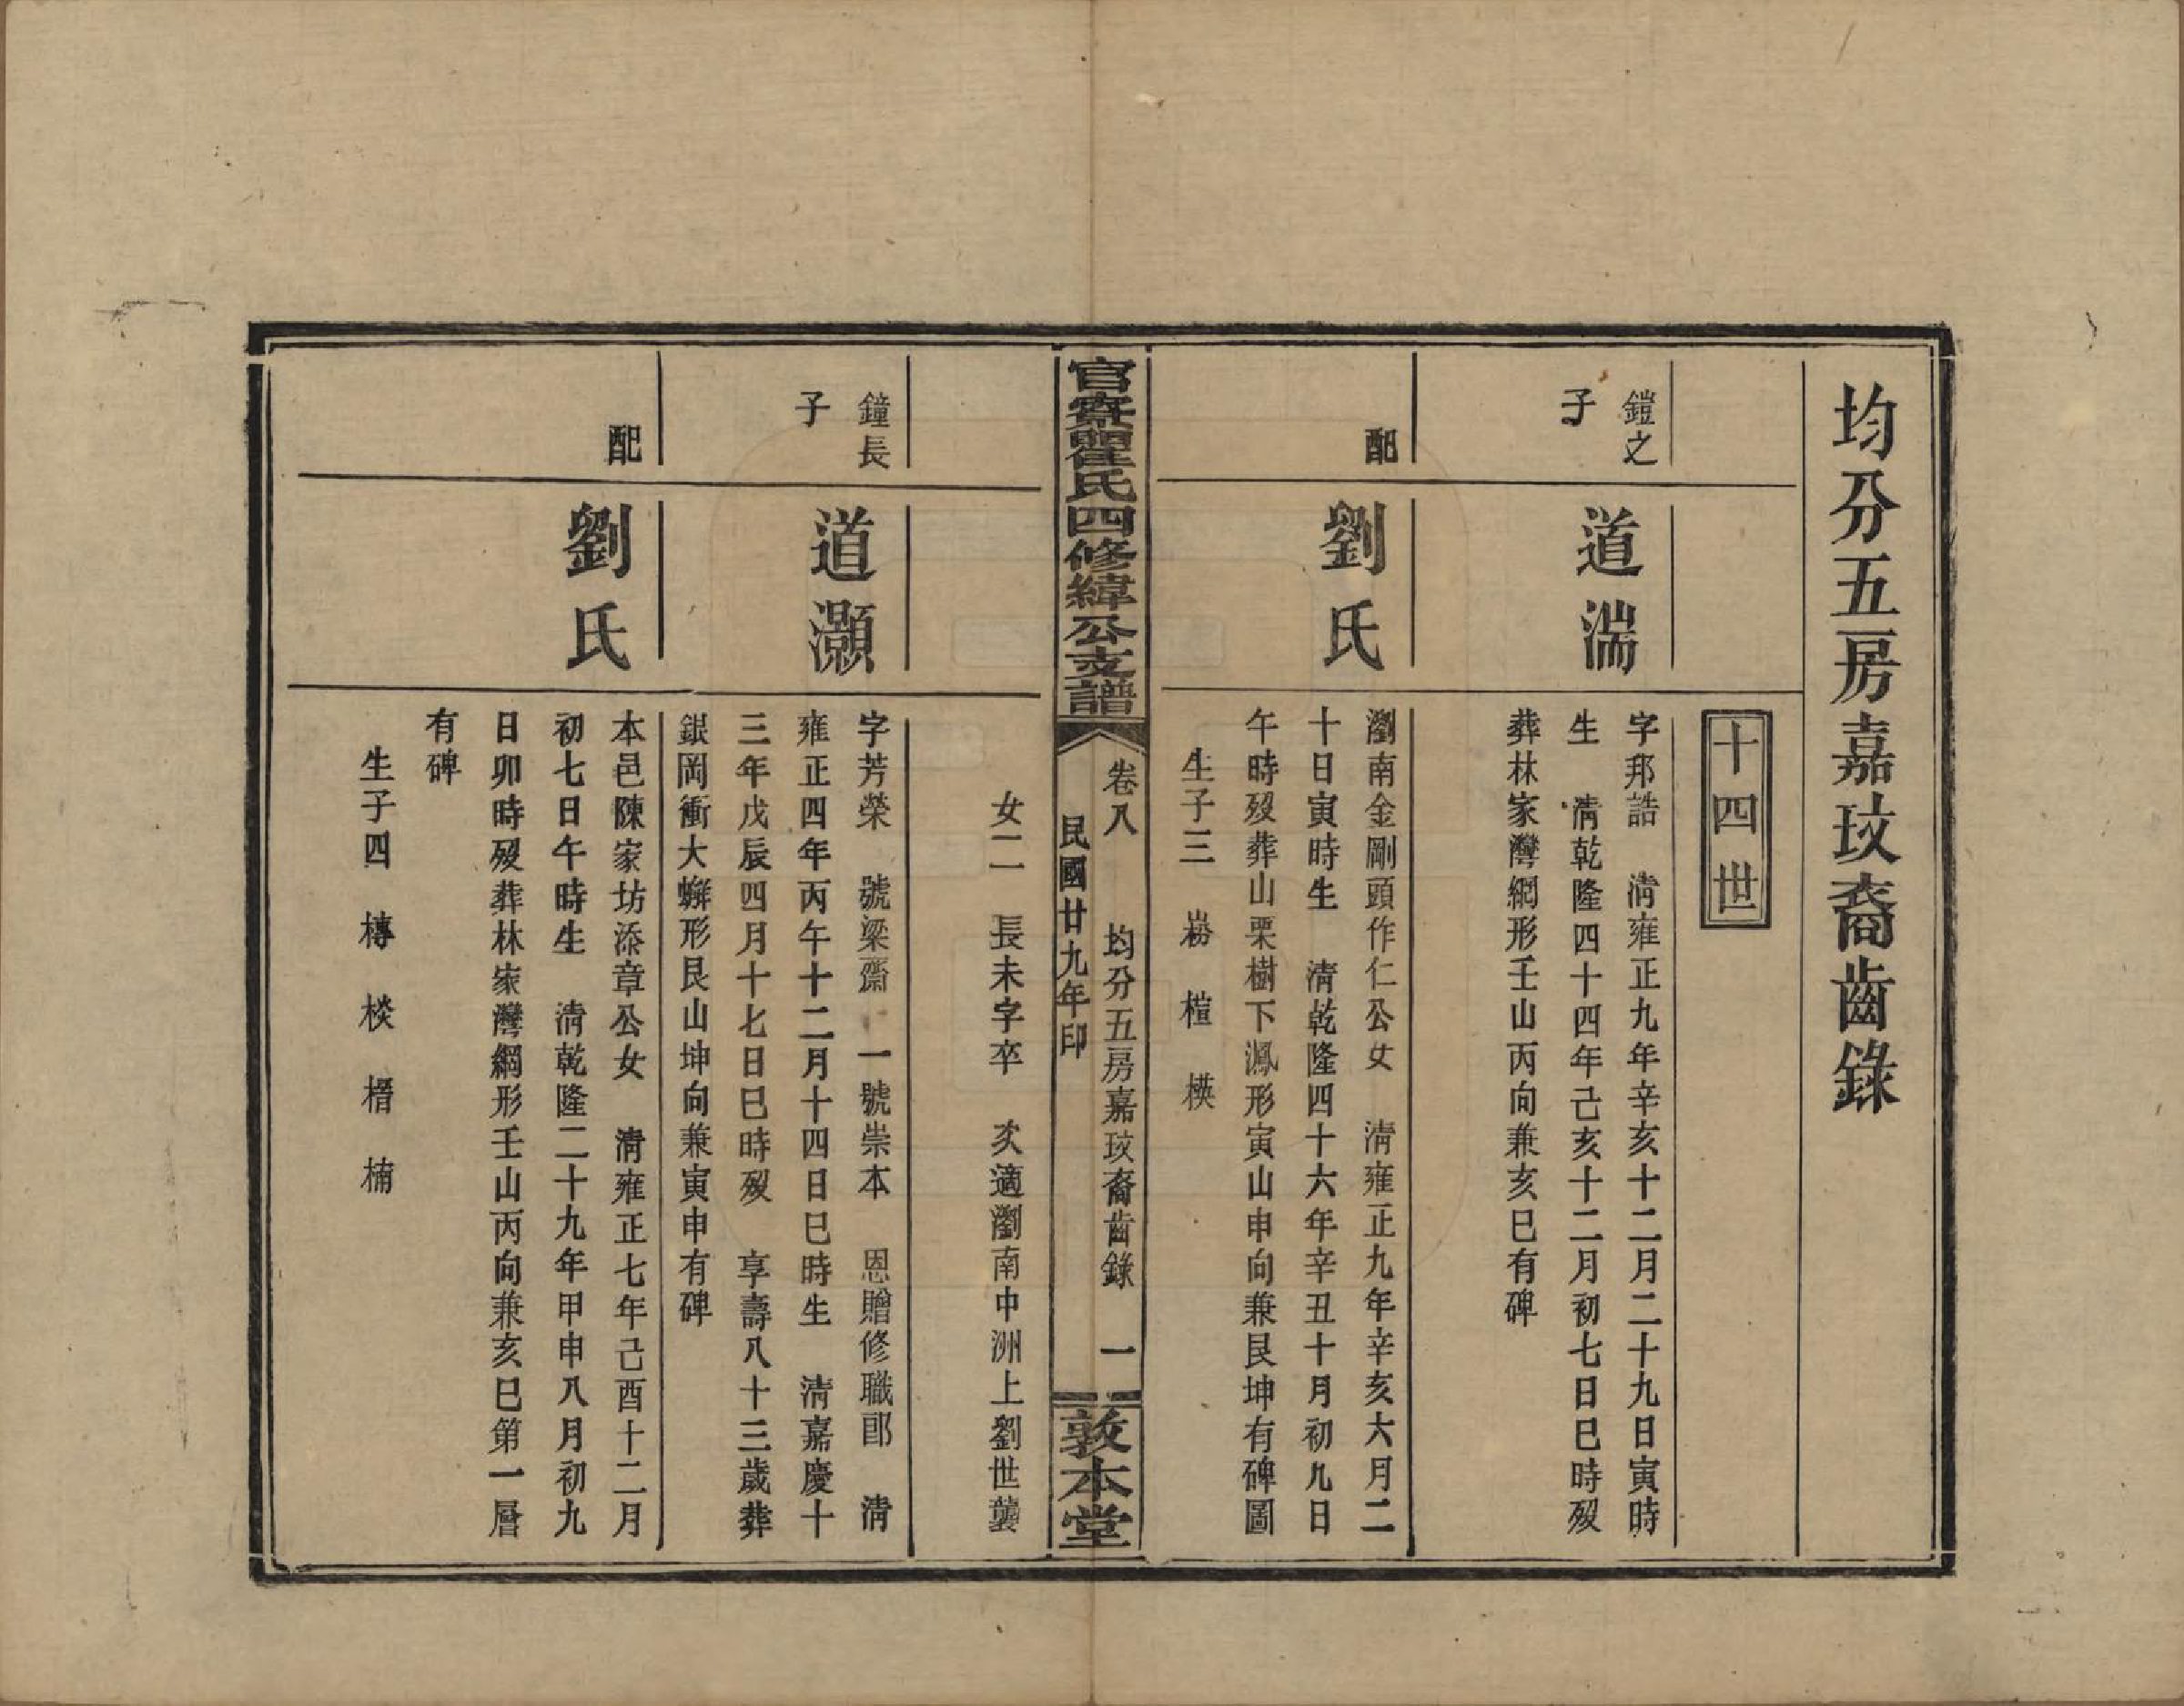 均分五房嘉玟裔齒錄
十四世
鎧之
子
道湍
字邦誥 清雍正九年辛亥十二月二十九日寅時
生 清乾隆四十四年己亥十二月初七日巳時歿
葬林家灣網形壬山丙向兼亥巳有碑
配
劉氏
瀏南金剛頭作仁公女 清雍正九年辛亥六月二
十日寅時生 清乾隆四十六年辛丑十月初九日
午時歿葬山栗樹下鳳形寅山申向兼艮坤有碑圖
生子三 楦 楧
官寮瞿氏四修緯公支譜
卷八 均分五房嘉玟裔齒錄 一
民國廿九年印
敦本堂
女二 長未字卒 次適瀏南中洲上劉世龔
鐘長
子
道灝
字芳榮 號梁齋 一號崇本 恩贈修職郎 清
雍正四年丙午十二月十四日巳時生 清嘉慶十
三年戊辰四月十七日巳時歿 享壽八十三歲葬
銀岡衝大蠏形艮山坤向兼寅申有碑
配
劉氏
本邑陳家坊添章公女 清雍正七年己酉十二月
初七日午時生 清乾隆二十九年甲申八月初九
日卯時歿葬林家灣網形壬山丙向兼亥巳第一層
有碑
生子四 榑 棪 榗 楠